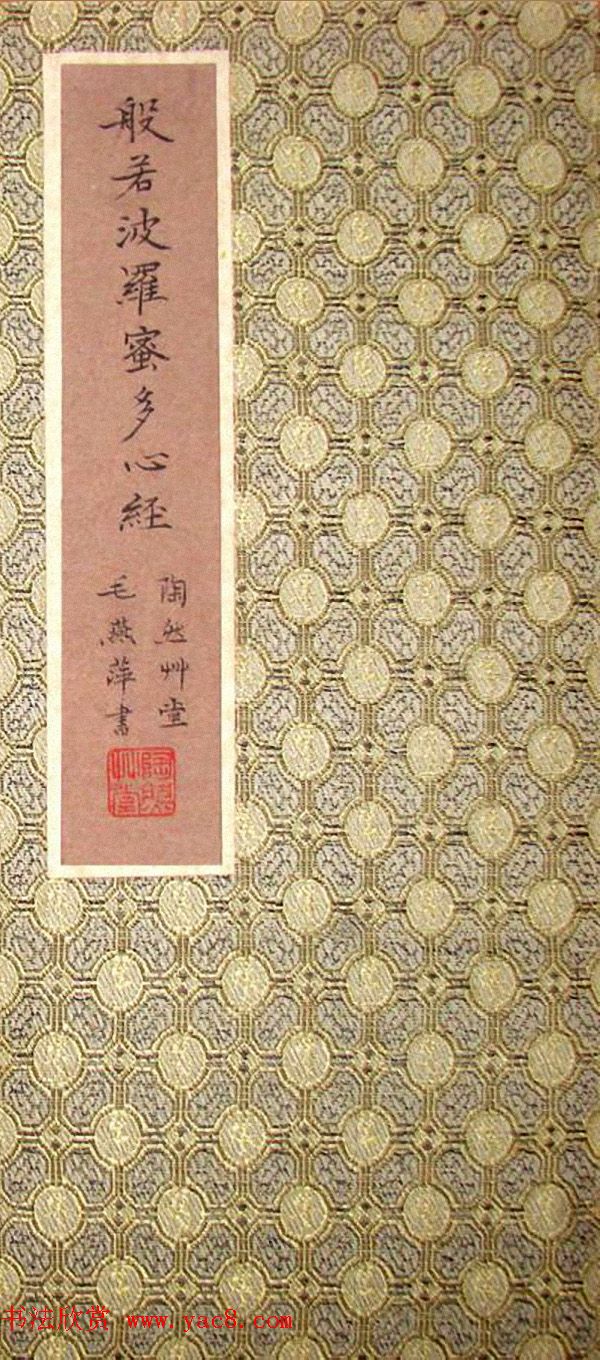 般若波羅蜜多心經
陶然艸堂
毛燕萍書
陶然
艸堂
书法欣赏 www.yac8.com